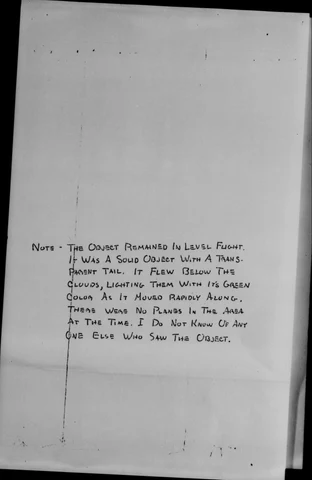 Note - The Object Remained In Level Flight.
It Was A Solid Object With A Trans-
parent Tail. It Flew Below The
Clouds, Lighting Them With It's Green
Color As It Moved Rapidly Along.
There Were No Planes In The Area
At The Time. I Do Not Know Of Any
One Else Who Saw The Object.